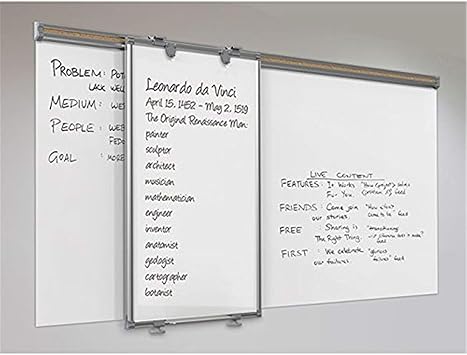 PROBLEM: POT
LACK WEL
MEDIUM: WEB
PEOPLE: WEB
FEDO
GOAL : MORE
Leonardo da Vinci
April 15, 1452 – May 2, 1519
The Original Renaissance Man:
painter
sculptor
architect
musician
mathematician
engineer
inventor
anatomist
geologist
cartographer
botanist
LIVE CONTENT
FEATURES: It Works "How
For You. feed
FRIENDS: Come join "how
our stories. come to be" feed
FREE : Sharing is
The Right Thing. feed
FIRST : We celebrate "glorious
our failures. failures" feed